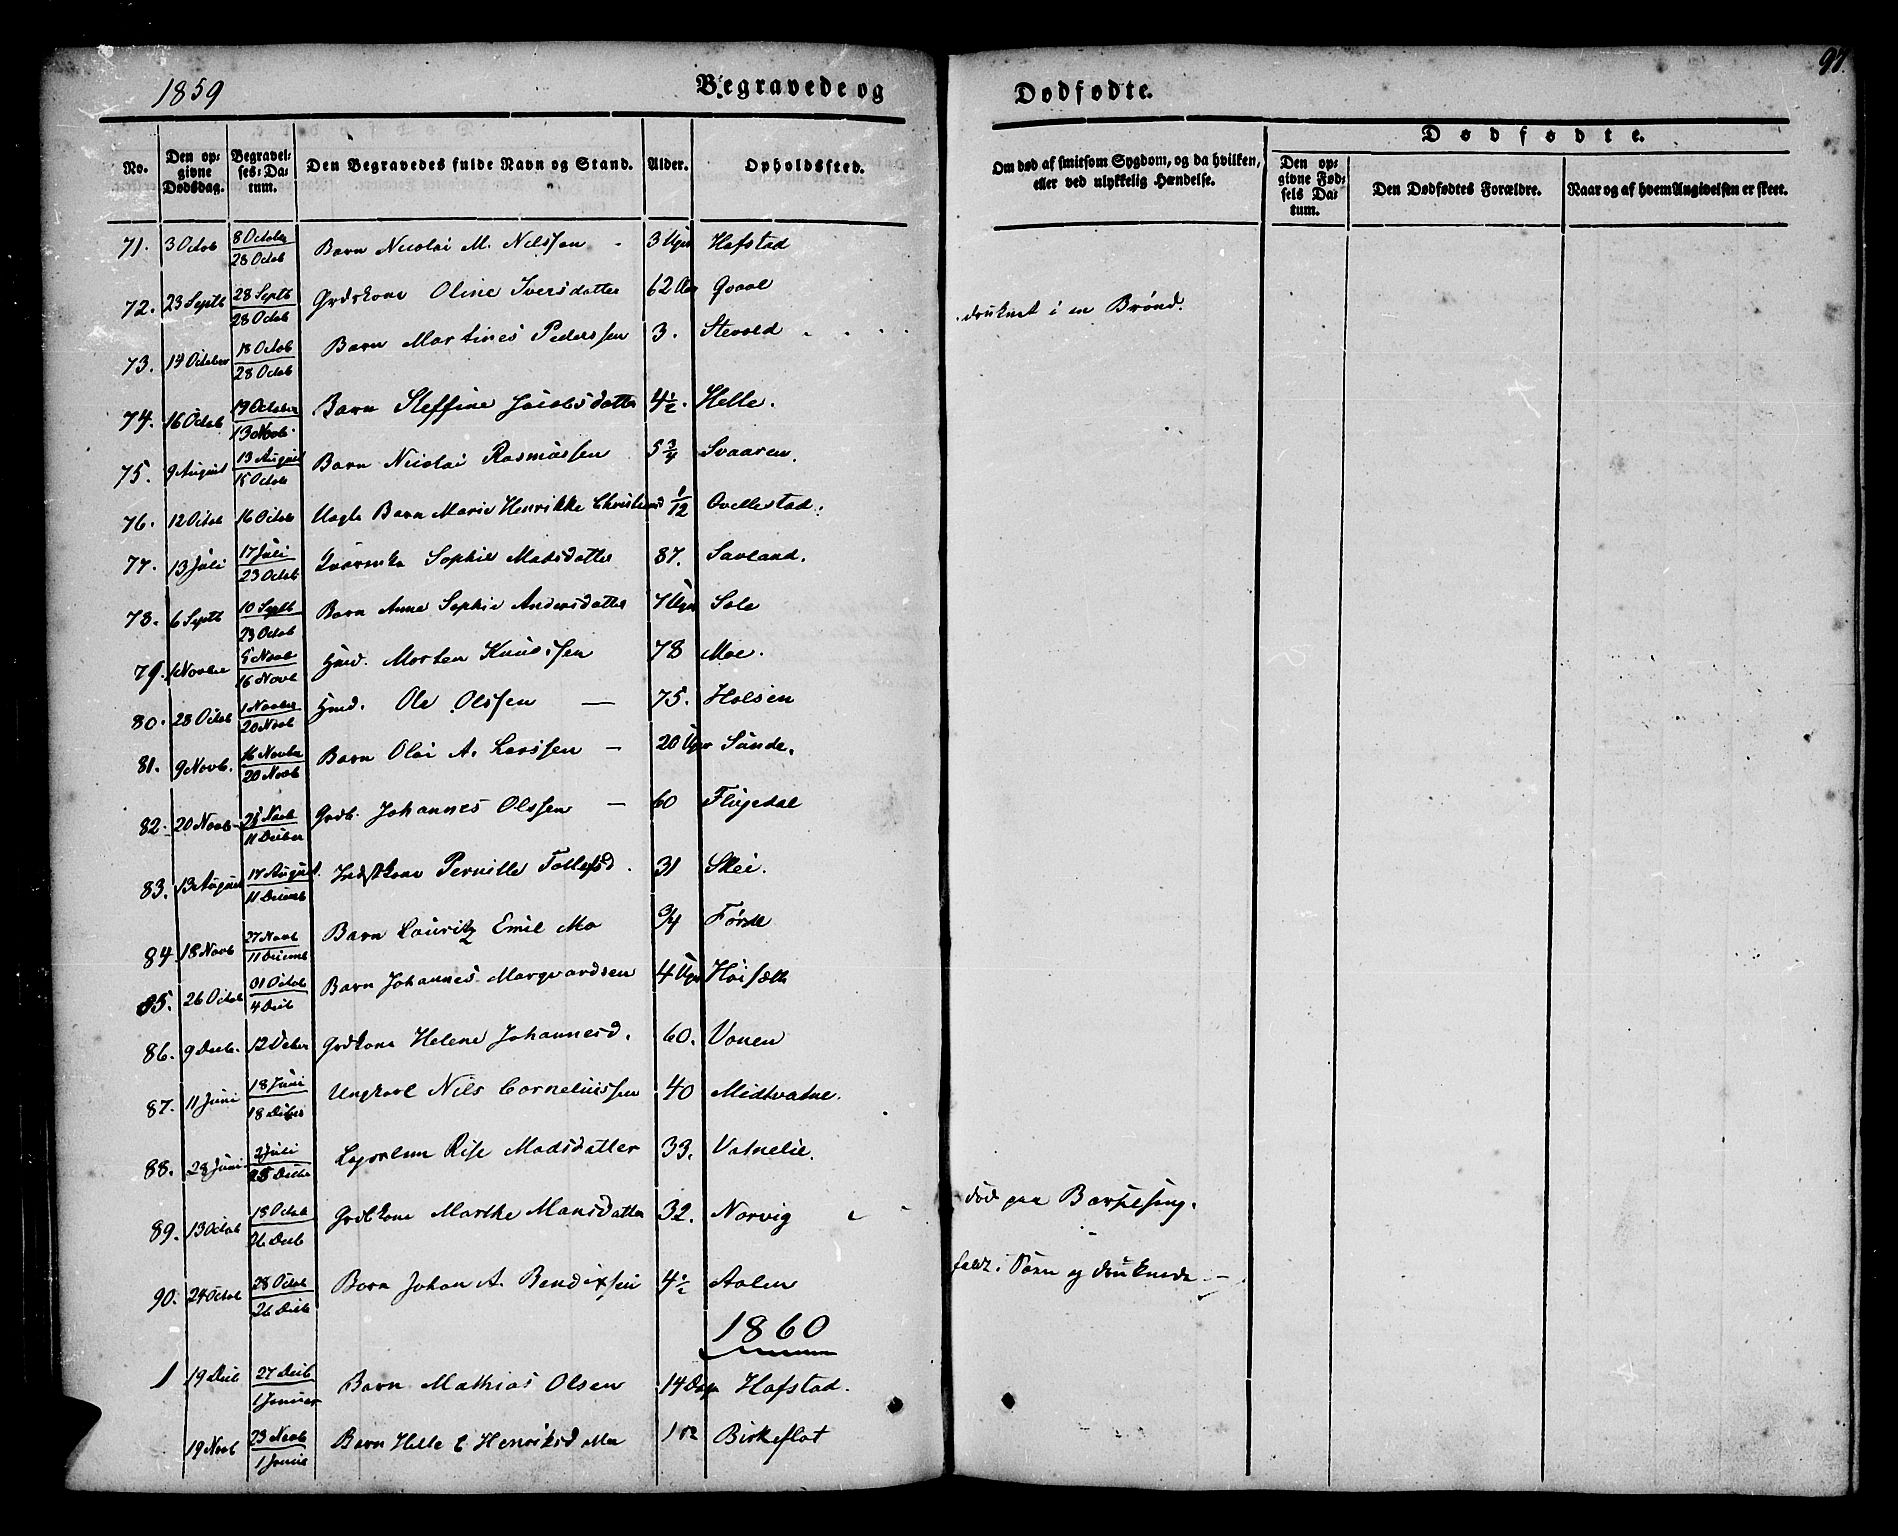 1859 Begravede og Dødfødte. 97.
No. Den opgivne Dødsdag. Begravelses-Datum. Den Begravedes fulde Navn og Stand. Alder. Opholdssted. Om død af smitsom Sygdom, og da hvilken, eller ved ulykkelig Hændelse. Dødfødte. Den opgivne Fødsels Datum. Den Dødfødtes Forældre. Naar og af hvem Angivelsen er skeet.
71. 3 Octob 8 October 28 Octob Barn Nicolai M. Nilssen - 3 Uger Hafstad
72. 23 Septb 28 Septb 28 Octob Grdskone Oline Iversdatter 62 Aar Qvaal
73. 14 October 18 Octob 28 Octob Barn Martines Pederssen 3. Stevold druknet i en Brønd.
74. 16 Octob 19 October 13 Novb. Barn Steffine Jacobsdatter 4½. Helle.
75. 9 August 13 August 15 Octob Barn Nicolai Rasmussen 5¾ Svaaren.
76. 12 Octob 16 Octob Uægte Barn Marie Henrikke 1/12 Ovellestad.
77. 13 Juli 17 Juli 23 Octob Sophie Madsdatter 87. Savland.
78. 6 Septb 10 Septb 23 Octob Barn Anne Sophie Andersdatter 7 Uger Sole
79. 1 Novber 5 Novb 16 Novb Hmd. Morten Knudssen 78 Moe.
80. 28 Octob 1 Novber 20 Novb Hmd. Ole Olssen — 75. Holsen
81. 9 Novb. 16 Novber 20 Novb Barn Olai A. Larssen — 20 Uger Sunde.
82. 20 Novb. Novb 11 Decber Grdb. Johannes Olssen — 60 Flugedal
83. 13 August 17 August. 11 Decemb Indstkone Pernille Tollefsd. 31 Skei.
84 18 Novb 27 Novb 11 Decemb Barn Lauritz Emil Mo 3/4 Førde
85. 26 Octob 31 Octob 4 Decb Barn Johannes Marqvardsen 4 Uger Høisæth
86. 9 Decb. 12 Decber Grdkone Helene Johannesd. 60. Vonen
87. 11 Juni 18 Juni 18 Decber Ungkarl Nils Corneliussen 40 Midtvatne.
88. 28 Juni 2 Juli Decber Madsdatter 33. Vatnelie.
89. 13 Octob 18 Octob 26 Decb Grdbkone Marthe Mansdatter 32. Norvig død paa Barselseng.
90. 24 Octob 28 Octob 26 Decb Barn Johan A. Bendixsen 4½ Aalen faldt i Søen og druknede —
1860
1 19 Decb 27 Decb 1 Januar Barn Mathias Olsen 14 Dage Hafstad.
19 Novb 23 Novb 1 Januar Barn Helle E. Henriksdatter Birkeflot